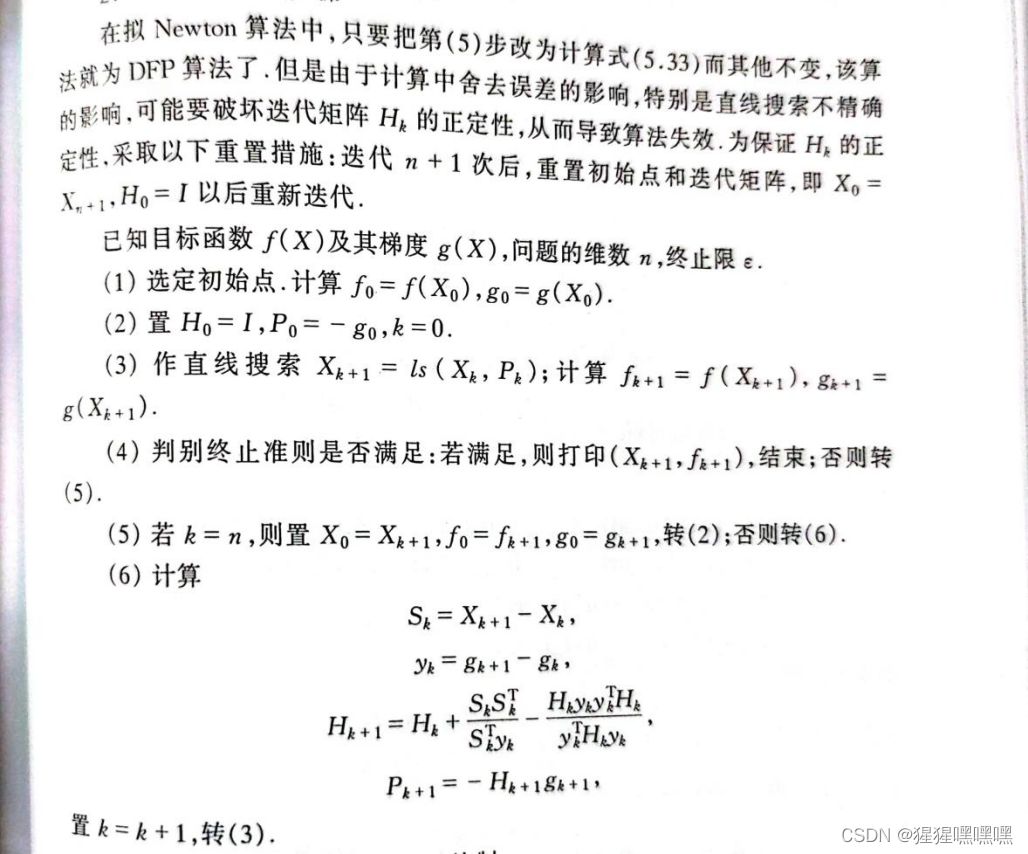 在拟 Newton 算法中,只要把第(5)步改为计算式(5.33)而其他不变,该算
法就为 DFP 算法了.但是由于计算中舍去误差的影响,特别是直线搜索不精确
的影响,可能要破坏迭代矩阵 Hₖ 的正定性,从而导致算法失效.为保证 Hₖ 的正
定性,采取以下重置措施:迭代 n + 1 次后,重置初始点和迭代矩阵,即 X₀ =
Xₙ₊₁,H₀ = I 以后重新迭代.
已知目标函数 f(X)及其梯度 g(X),问题的维数 n,终止限 ε.
(1) 选定初始点.计算 f₀ = f(X₀),g₀ = g(X₀).
(2) 置 H₀ = I,P₀ = - g₀,k = 0.
(3) 作直线搜索 Xₖ₊₁ = ls(Xₖ,Pₖ);计算 fₖ₊₁ = f(Xₖ₊₁),gₖ₊₁ =
g(Xₖ₊₁).
(4) 判别终止准则是否满足:若满足,则打印(Xₖ₊₁,fₖ₊₁),结束;否则转
(5).
(5) 若 k = n,则置 X₀ = Xₖ₊₁,f₀ = fₖ₊₁,g₀ = gₖ₊₁,转(2);否则转(6).
(6) 计算
Sₖ = Xₖ₊₁ - Xₖ,
yₖ = gₖ₊₁ - gₖ,
Hₖ₊₁ = Hₖ + SₖSₖᵀ / Sₖᵀyₖ - HₖyₖyₖᵀHₖ / yₖᵀHₖyₖ,
Pₖ₊₁ = - Hₖ₊₁gₖ₊₁,
置 k = k + 1,转(3).
CSDN @猩猩嘿嘿嘿